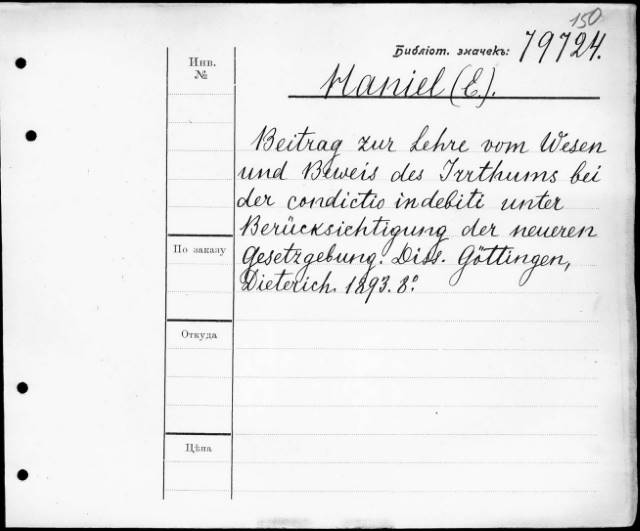 150
Библіот. значекъ: 79724.
Инв.
№
Maniel (E.).
Beitrag zur Lehre vom Wesen
und Beweis des Irrthums bei
der condictio indebiti unter
Berücksichtigung der neueren
Gesetzgebung. Diss. Göttingen,
Dieterich. 1893. 8º.
По заказу
Откуда
Цѣна